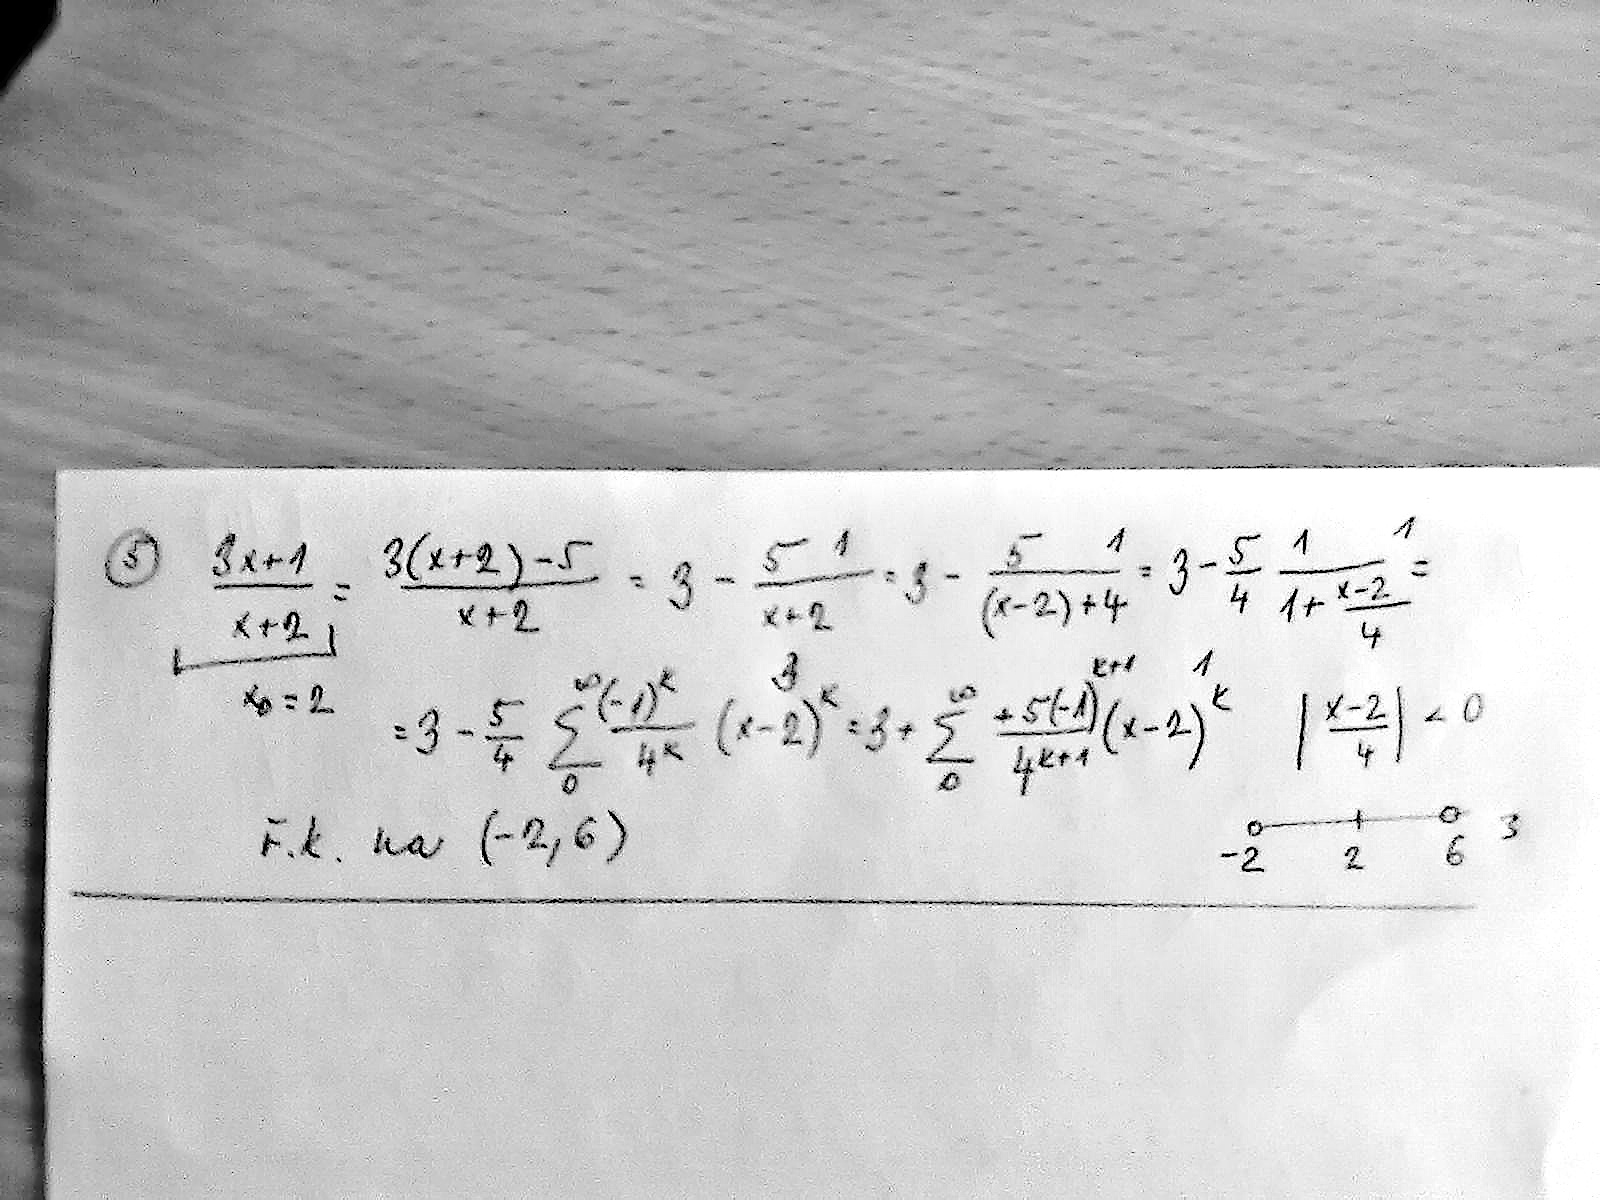 ⑤ (3x+1)/(x+2) = (3(x+2)-5)/(x+2) = 3 - 5/(x+2) 1 = 3 - 5/((x-2)+4) 1 = 3 - 5/4 1/(1+(x-2)/4) 1 =
x₀ = 2
= 3 - 5/4 ∑₀^∞ (-1)^k/4^k (x-2)^k 3 = 3 + ∑₀^∞ +5(-1)^(k+1)/4^(k+1) (x-2)^k 1 |(x-2)/4| < 0
ř.k. na (-2, 6) -2 2 6 3